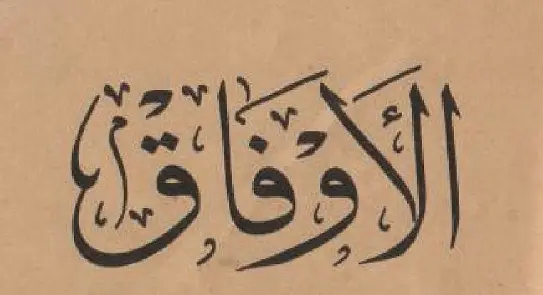 الأوفاق